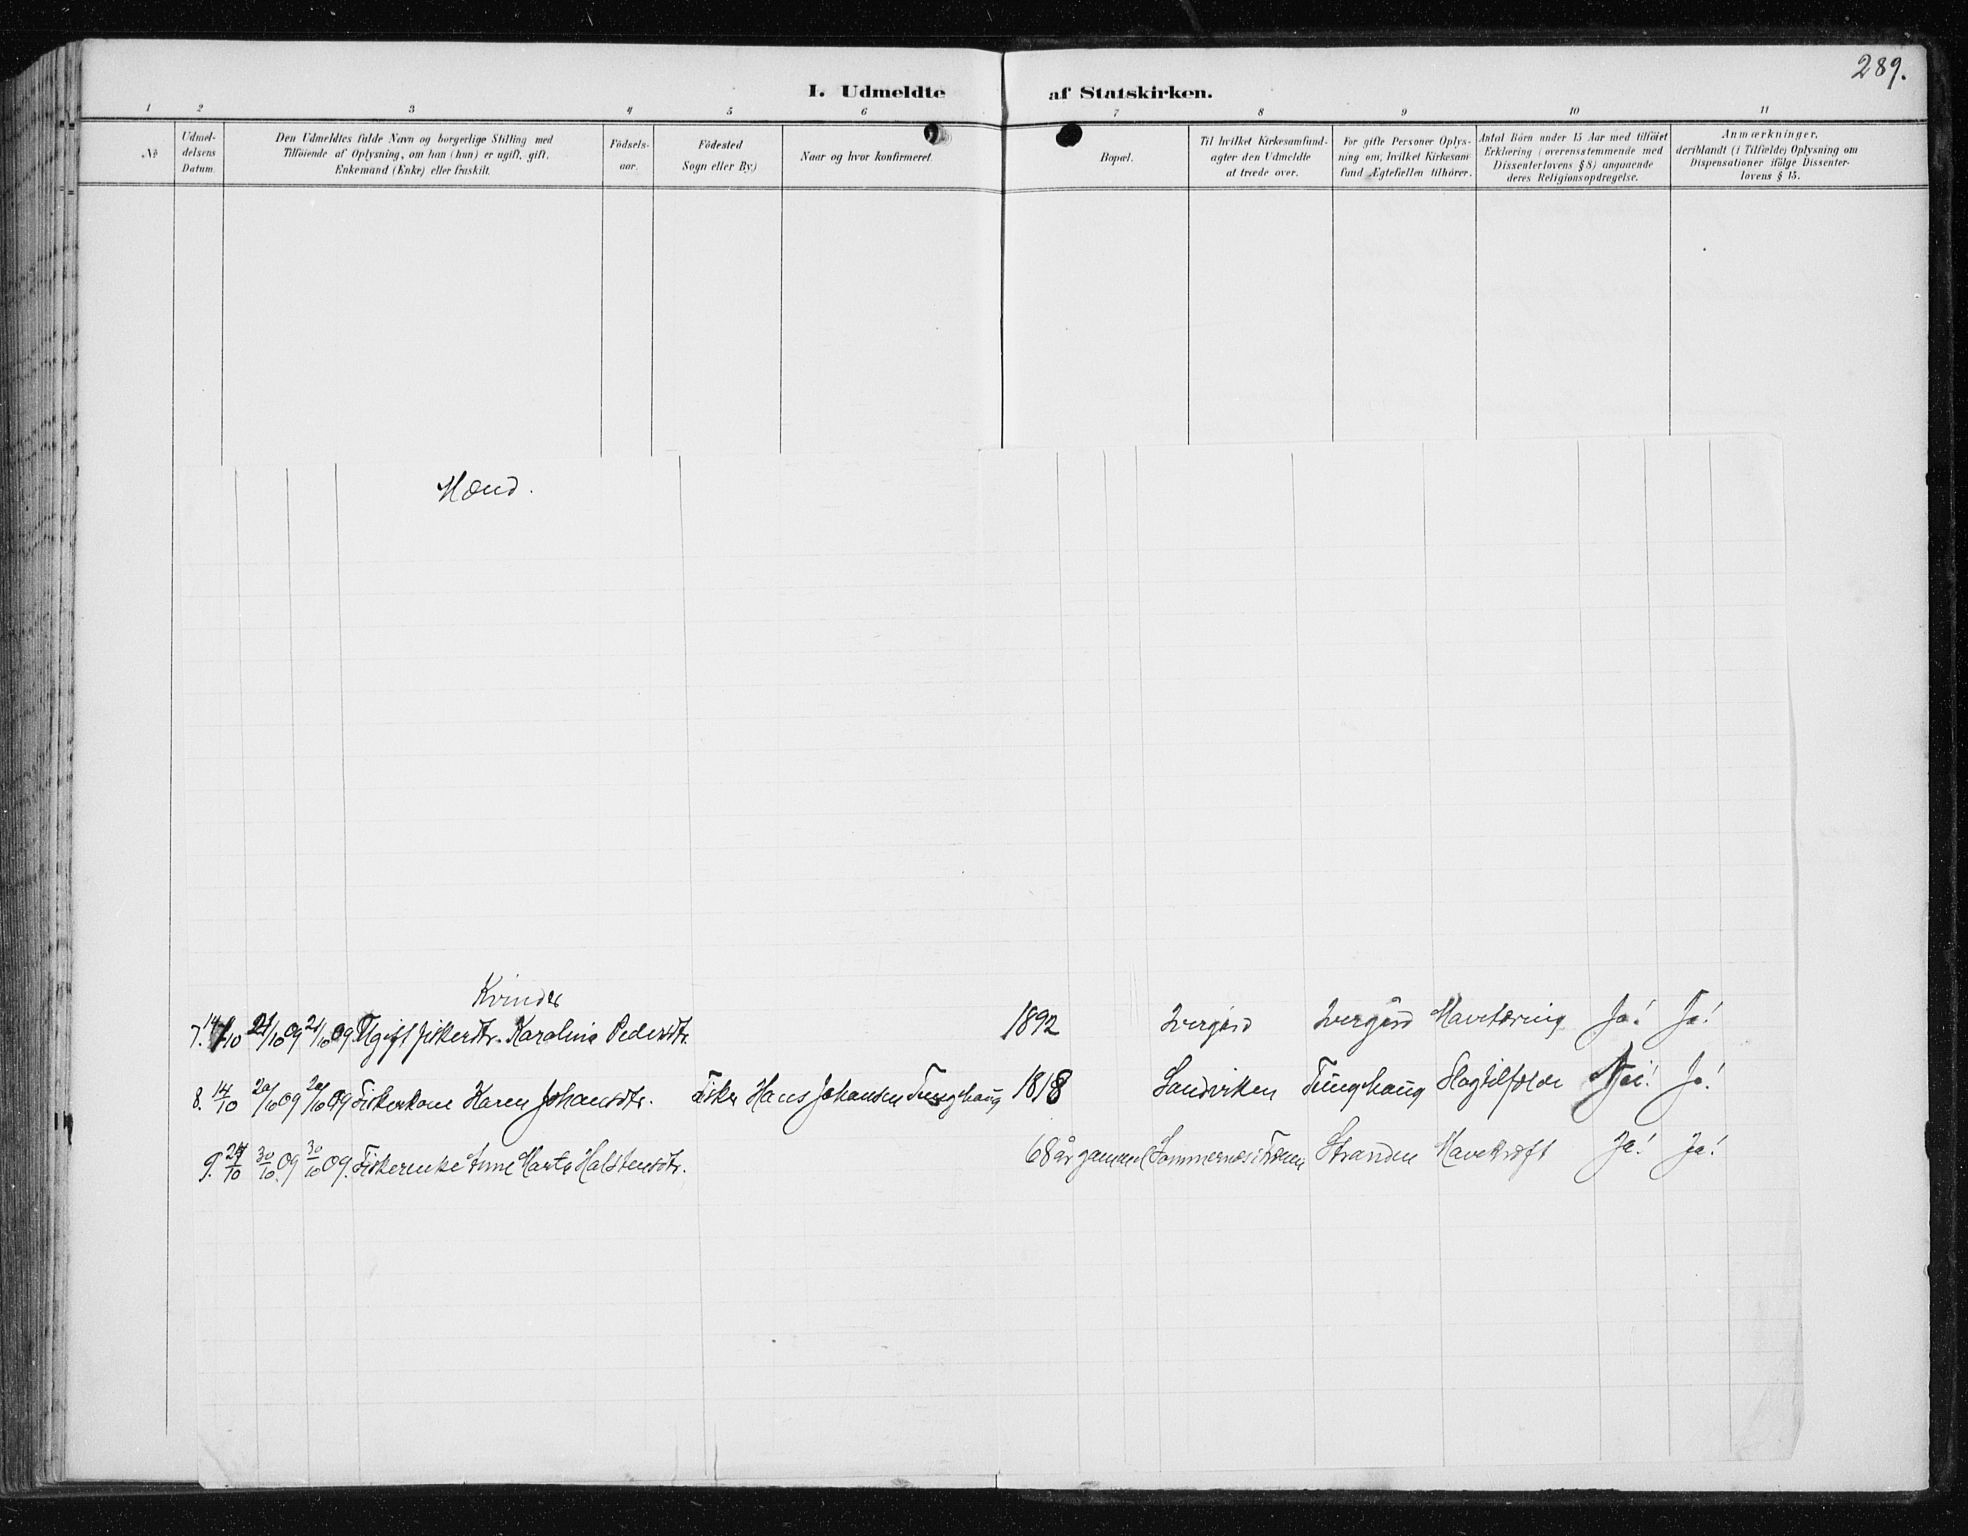 289.
I. Udmeldte af Statskirken.
1 2 3 4 5 6 7 8 9 10 11
No
Udmeldelsens Datum.
Den Udmeldtes fulde Navn og borgerlige Stilling med
Tilföiende af Oplysning, om han (hun) er ugift, gift,
Enkemand (Enke) eller fraskilt.
Födsels-
aar.
Födested
Sogn eller By.)
Naar og hvor konfirmeret.
Bopæl.
Til hvilket Kirkesamfund
agter den Udmeldte
at træde over.
For gifte Personer Oplys-
ning om, hvilket Kirkesam
fund Ægtefællen tilhörer.
Antal Börn under 15 Aar med tilföiet
Erklæring (overensstemmende med
Dissenterlovens § 8) angaaende
deres Religionsopdragelse.
Anmærkninger,
deriblandt (i Tilfælde) Oplysning om
Dispensationer ifölge Dissenter-
lovens § 15.
Mænd.
Kvinder
7. 14/10 21/10 09 21/10 09 Ugift fiskerdtr. Karoline Pedersdtr. 1892 Ivergård Ivergård Mavetæring Ja! Ja!
8. 14/10 20/10 09 20/10 09 Fiskerkone Karen Johansdtr. Fisker Hans Johansen Tunghaug 1818 Sandviken Tunghaug Slagtilfælde Nei! Ja!
9. 24/10 30/10 09 30/10 09. Fiskerenke Anne Marta Halstensdtr. 68 år gammel Sommernes i Stranden Mavekræft Ja! Ja!